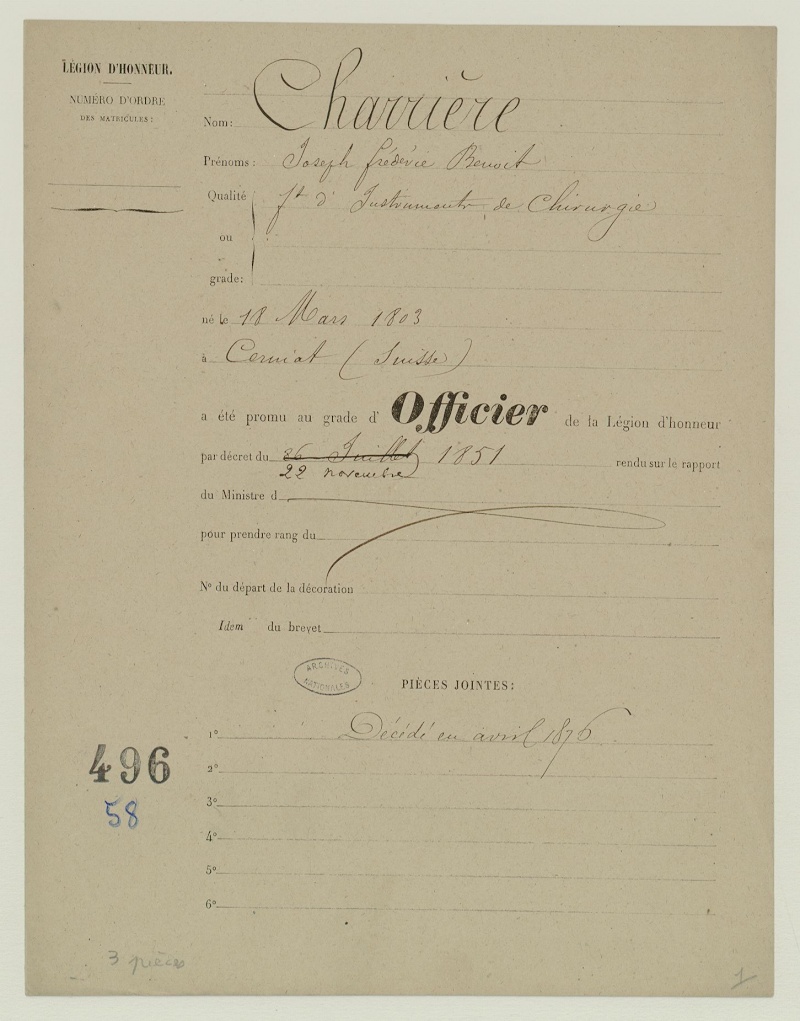 LÉGION D'HONNEUR.
NUMÉRO D'ORDRE
DES MATRICULES:
Nom: Charrière
Prénoms: Joseph frédéric Benoit
Qualité ft d' Instruments de Chirurgie
ou
grade:
né le 18 Mars 1803
à Cerniat (Suisse)
a été promu au grade d' Officier de la Légion d'honneur
par décret du 26 Juillet 1851 rendu sur le rapport
22 novembre
du Ministre d
pour prendre rang du
No du départ de la décoration
Idem du brevet
ARCHIVES
NATIONALES
PIÈCES JOINTES:
1o Décédé en avril 1876
2o
3o
4o
5o
6o
496
58
3 pièces
1